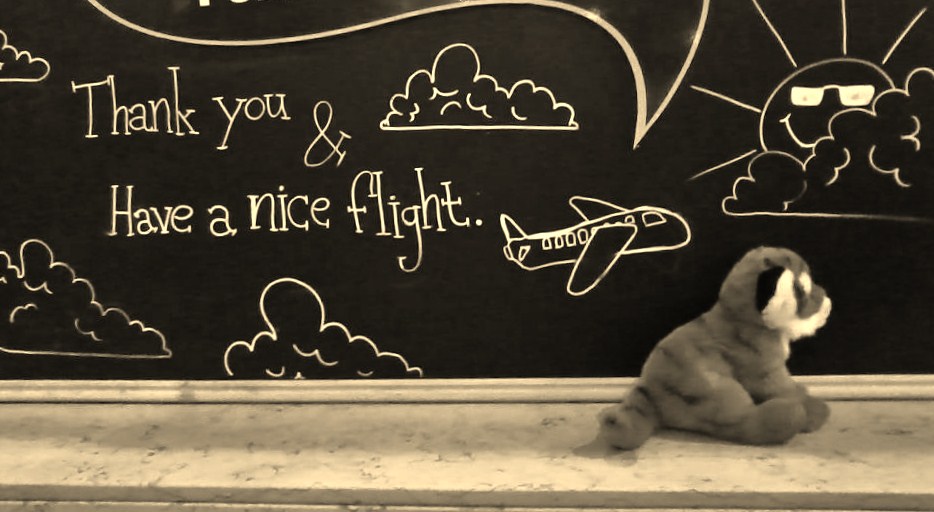 Thank you &
Have a nice flight.